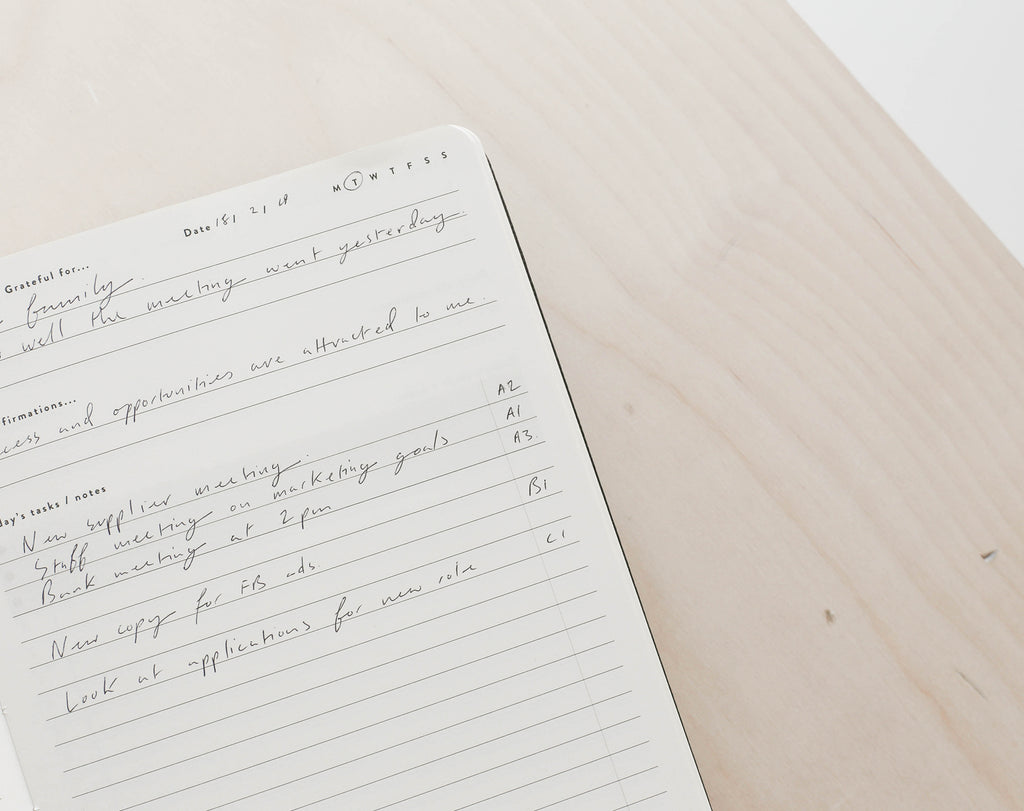 Date 18 1 2 1
M T W T F S S
Grateful for...
family.
well the meeting went yesterday.
firmations...
cess and opportunities are attracted to me.
day's tasks / notes
New supplier meeting. A2
Staff meeting on marketing goals A1
Bank meeting at 2pm A3.
New copy for FB ads. B1
Look at applications for new role C1